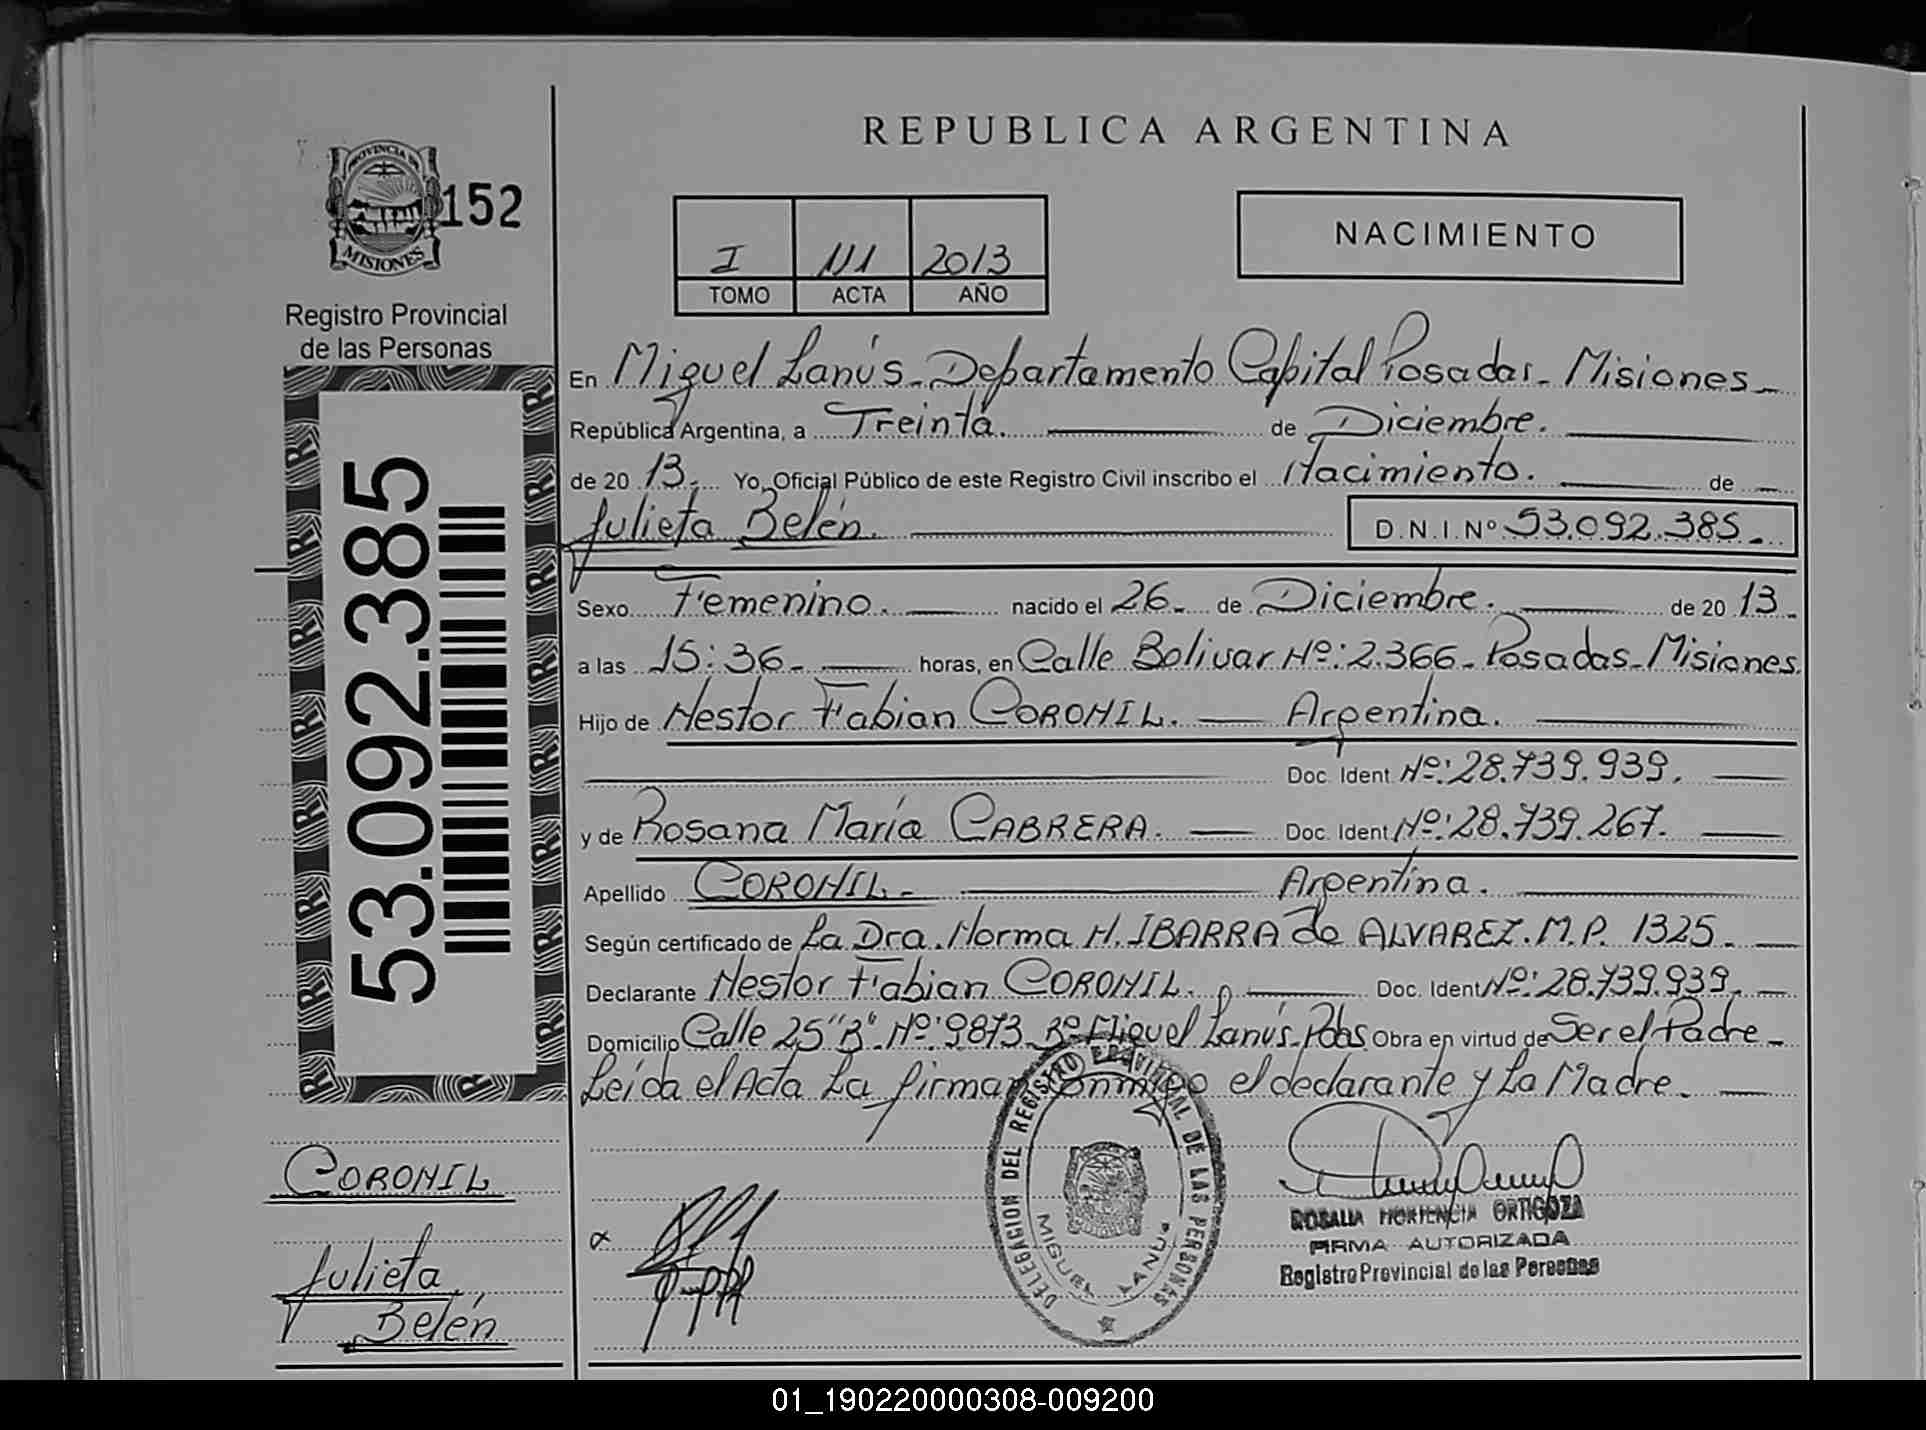 REPUBLICA ARGENTINA
PROVINCIA DE
MISIONES
152
Registro Provincial
de las Personas
I 111 2013
TOMO ACTA AÑO
NACIMIENTO
En Miguel Lanús - Departamento Capital Posadas - Misiones -
República Argentina, a Treinta. de Diciembre.
de 20 13. Yo, Oficial Público de este Registro Civil inscribo el Nacimiento. de
Julieta Belén. D.N.I. Nº 53.092.385 -
53.092.385
Sexo Femenino. nacido el 26 - de Diciembre. de 20 13 -
a las 15:36 - horas, en Calle Bolivar Nº: 2.366 - Posadas - Misiones.
Hijo de Nestor Fabian CORONIL. Argentina.
Doc. Ident. Nº: 28.739.939.
y de Rosana María CABRERA. Doc. Ident. Nº: 28.739.267.
Apellido CORONIL - Argentina.
Según certificado de La Dra. Norma N. IBARRA de ALVAREZ. M.P. 1325 -
Declarante Nestor Fabian CORONIL. Doc. Ident. Nº: 28.739.939 -
Domicilio Calle 25 "B" Nº: 9873 Bº Miguel Lanús - Pdas Obra en virtud de Ser el Padre -
Leída el Acta La firman conmigo el declarante y La Madre.
CORONIL
Julieta
Belén
DELEGACION DEL REGISTRO PROVINCIAL DE LAS PERSONAS
MIGUEL LANUS
ROSALIA HORTENCIA ORTIGOZA
FIRMA AUTORIZADA
Registro Provincial de las Personas
01_190220000308-009200